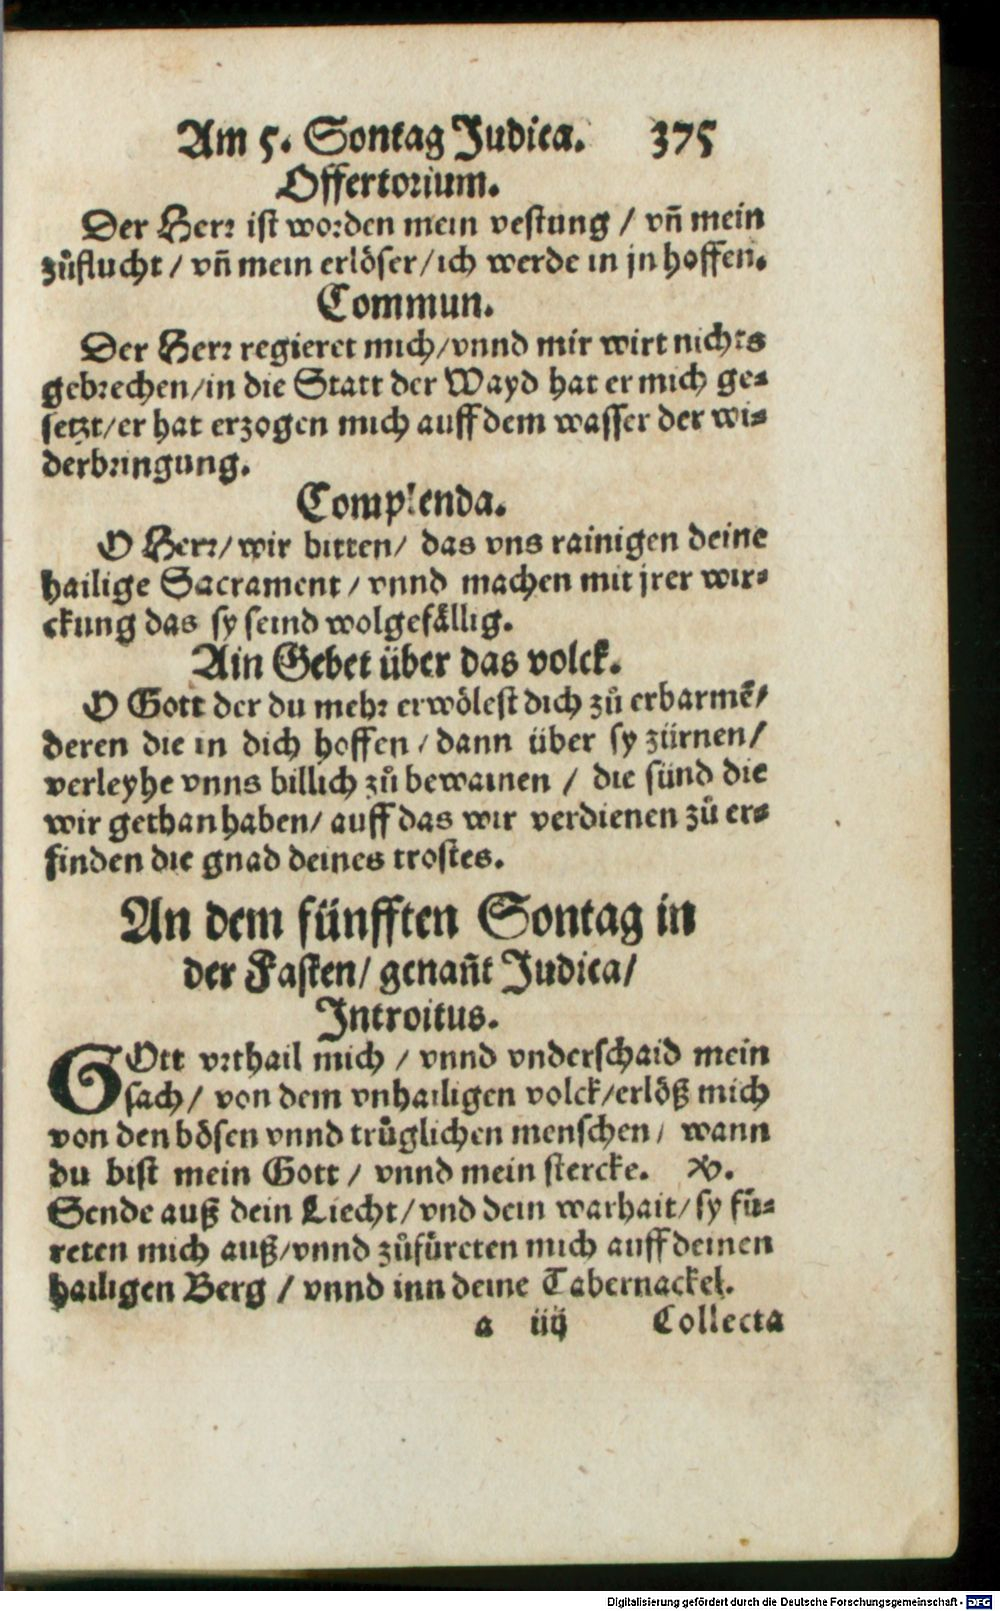 Am 5. Sontag Judica. 375
Offertorium.
Der Herr ist worden mein vestung / vñ mein
zůflucht / vñ mein erlöser / ich werde in jn hoffen.
Commun.
Der Herr regieret mich / vnnd mir wirt nichts
gebrechen / in die Statt der Wayd hat er mich ge=
setzt / er hat erzogen mich auff dem wasser der wi=
derbringung.
Complenda.
O Herr / wir bitten / das vns rainigen deine
hailige Sacrament / vnnd machen mit jrer wir=
ckung das sy seind wolgefällig.
Ain Gebet über das volck.
O Gott der du mehr erwölest dich zů erbarmē /
deren die in dich hoffen / dann über sy zürnen /
verleyhe vnns billich zů bewainen / die sünd die
wir gethan haben / auff das wir verdienen zů er=
finden die gnad deines trostes.
An dem fünfften Sontag in
der Fasten / genañt Judica /
Introitus.
GOtt vrthail mich / vnnd vnderschaid mein
sach / von dem vnhailigen volck / erlöß mich
von den bösen vnnd trůglichen menschen / wann
du bist mein Gott / vnnd mein stercke. V.
Sende auß dein Liecht / vnd dein warhait / sy fü=
reten mich auß / vnnd zůfüreten mich auff deinen
hailigen Berg / vnnd inn deine Tabernackel.
a iiij Collecta
Digitalisierung gefördert durch die Deutsche Forschungsgemeinschaft - DFG